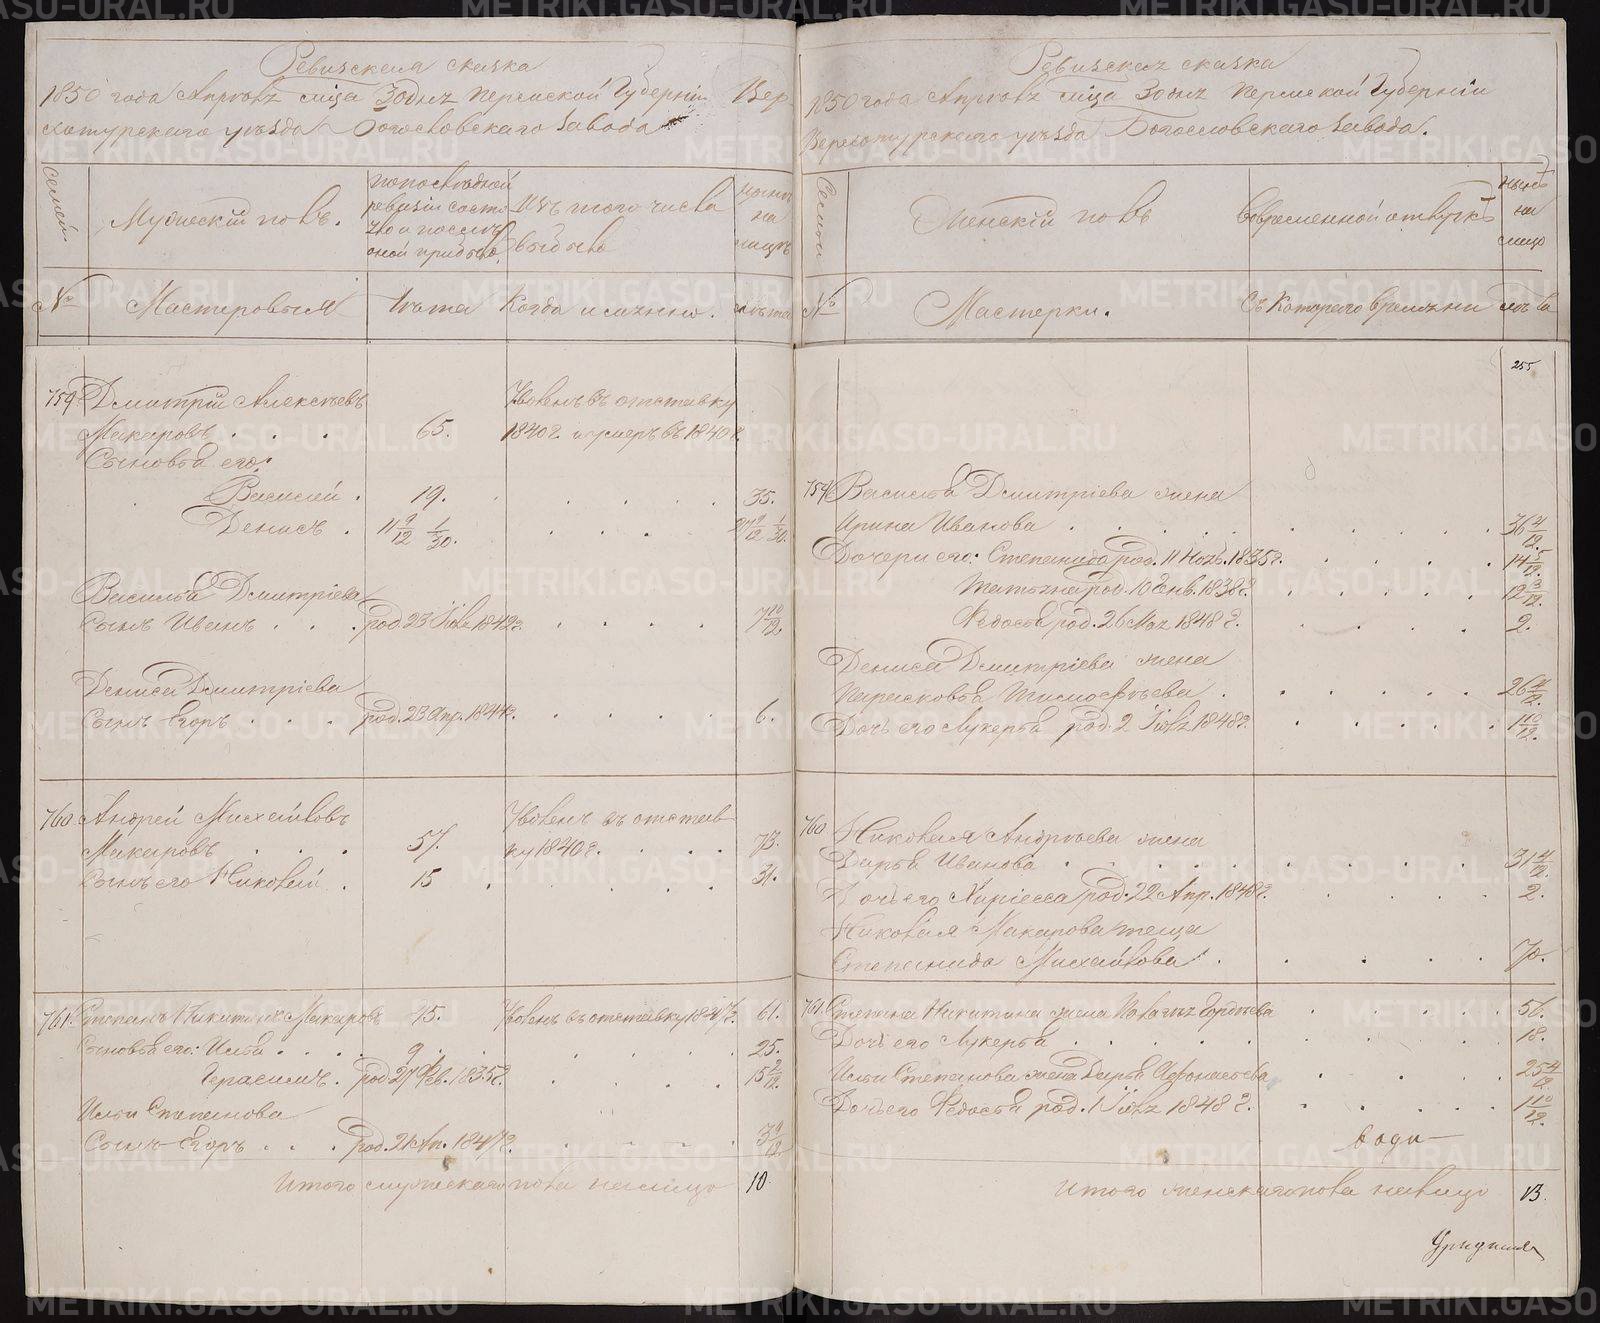 Ревизская сказка
1850 года Апреля м͞ца 30 дня Пермской Губерніи Вер-
хотурскаго уѣзда Богословскаго Завода
Семей
Мужескій полъ.
По последней ревизіи состояло и после оной прибыло
Изъ того числа выбыло
Ныне на лицо
№
Мастеровыя
Лѣта
Когда и имянно.
лѣта
759 Дмитрій Алексѣевъ
Макаровъ . . . 65.
Уволенъ въ отставку
1840 г. и умеръ въ 1840 г.
Сыновья его:
Василій . 19. 35.
Денисъ . 11 9/12 1/30. 27 9/12 1/30.
Василья Дмитріева
Сынъ Иванъ . . . род. 23 Іюля 1842 г. 7 10/12.
Дениса Дмитріева
Сынъ Егоръ . . . род. 23 Апр. 1844 г. 6.
760 Андрей Михайловъ
Макаровъ . . . 57. 73.
Уволенъ въ отстав-
ку 1840 г.
Сынъ его Николай . 15 31.
761. Степанъ Никитинъ Макаровъ 45. Уволенъ въ отставку 1847 г. 61.
Сыновья его: Илья . . . 9. 25.
Герасимъ . род. 27 Фев. 1835 г. 15 2/12
Ильи Степанова
Сынъ Егоръ . . . род. 21 Ап. 1847 г. 3
Итого мужескаго пола на лицо 10
Ревизская сказка
1850 года Апреля м͞ца 30 дня Пермской Губерніи
Верхотурскаго уѣзда Богословскаго Завода.
Семьи
Женскій полъ
Во временной отлучкѣ
Ныне на лицо
№
Мастерки.
Съ котораго времяни
лѣта
255
759 Василья Дмитріева жена
Ирина Иванова . 36 4/12.
Дочери его: Степанида род. 11 Нояб. 1835 г. 14 5/12.
Татьяна род. 10 Янв. 1838 г. 12 3/12.
Федосья род. 26 Мая 1848 г. 2.
Дениса Дмитріева жена
Парасковья Тимофѣева . 26 4/12.
Дочь его Лукерья род. 2 Іюля 1848 г. 1 10/12.
760. Николая Андрѣева жена
Дарья Иванова . 31 4/12.
Дочь его Хиріесса род. 22 Апр. 1848 г. 2.
Николая Макарова теща
Степанида Михайлова . 70.
761. Степана Никитина жена Палагѣя Гордѣева 56.
Дочь его Лукерья . 18.
Ильи Степанова жена Дарья Афонасьева 25 4/12
Дочь его Федосья род. 1 Іюля 1848 г. 1 10/12.
Итого женскаго пола на лицо 13.
METRIKI.GASO-URAL.RU